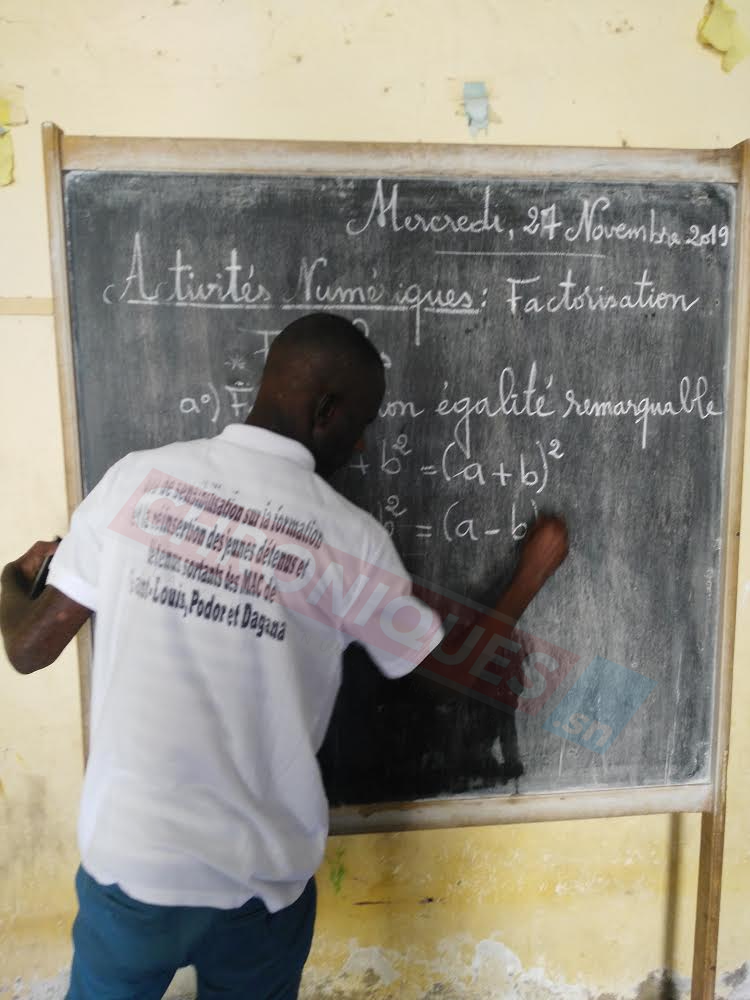 Mercredi, 27 Novembre 2019
Activités Numériques: Factorisation
*
a°) égalité remarquable
+ b² = (a+b)²
b² = (a-b)
de sensibilisation sur la formation
et la réinsertion des jeunes détenus et
détenus sortants des MAC de
Saint-Louis, Podor et Dagana
CHRONIQUES.sn